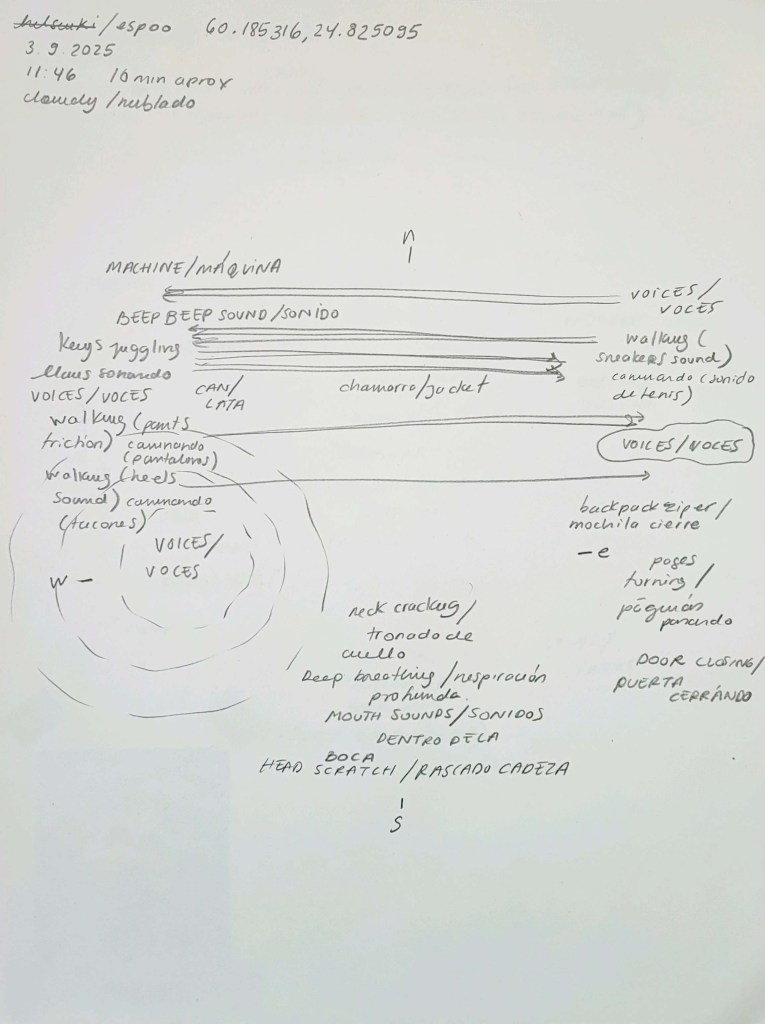 helsinki/espoo 60.185316, 24.825095
3. 9. 2025
11:46 10 min aprox
cloudy/nublado
n
MACHINE/MÁQUINA
VOICES/
VOCES
BEEP BEEP SOUND/SONIDO
keys juggling
llaves sonando
walking (
sneakers sound)
caminando (sonido
de tenis)
CAN/
LATA
chamarra/jacket
VOICES/VOCES
walking (pants
friction) caminando
(pantalones)
VOICES/VOCES
walking (heels
sound) caminando
(tacones)
VOICES/
VOCES
w
backpack ziper/
mochila cierre
e
pages
turning/
páginas
pasando
neck cracking/
tronado de
cuello
Deep breathing/respiración
profunda
MOUTH SOUNDS/SONIDOS
DENTRO DE LA
BOCA
DOOR CLOSING/
PUERTA
CERRÁNDO
HEAD SCRATCH/RASCADO CABEZA
S